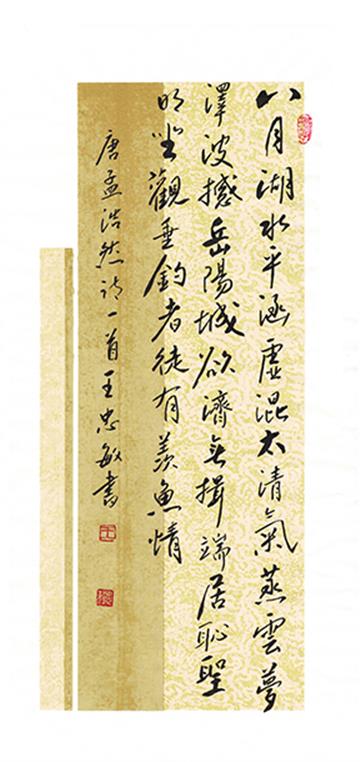 八月湖水平涵虛混太清氣蒸雲夢
澤波撼岳陽城欲濟無揖端居恥聖
明坐觀垂釣者徒有羨魚情
唐孟浩然詩一首王忠敏書
王